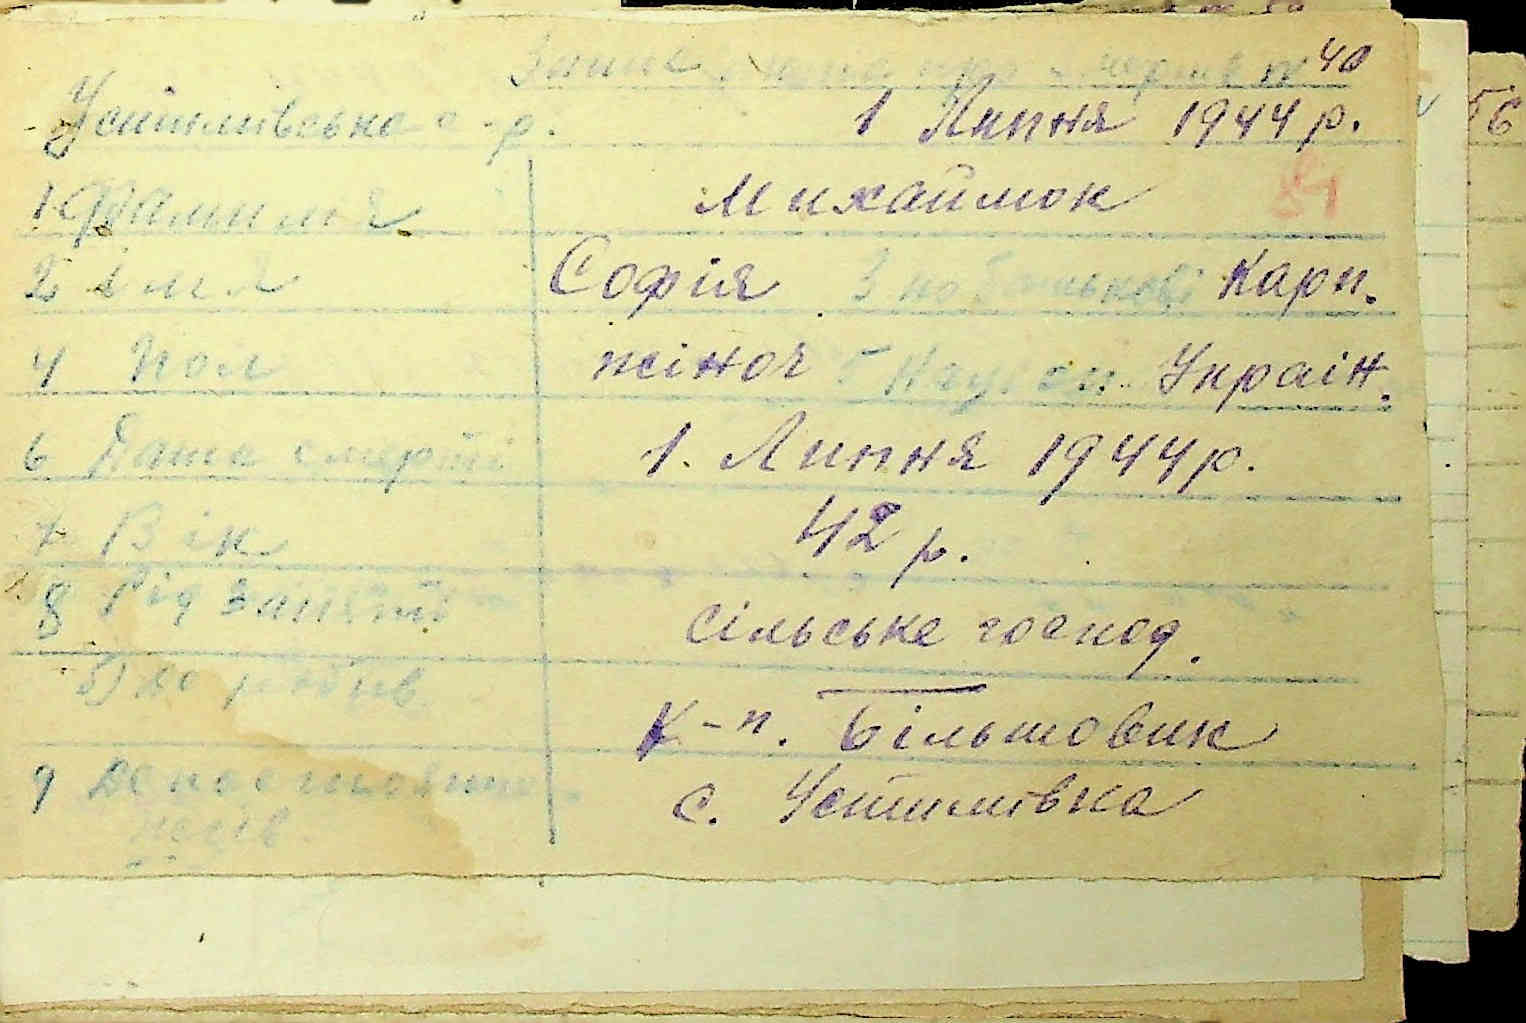 Запис акта про смерть № 40
Устимівська с-р. 1 Липня 1944 р.
1. Фамилія Михайлюк
2 імя Софія 3 по батькові Карп.
4 Пол жіноч 5 Націон. Украін.
6 Дата смерті 1. Липня 1944 р.
7 Вік 42 р.
8 Рід заняття сільське господ.
б) де робив к-п. Більшовик
9 де постоянно с. Устимівка
56